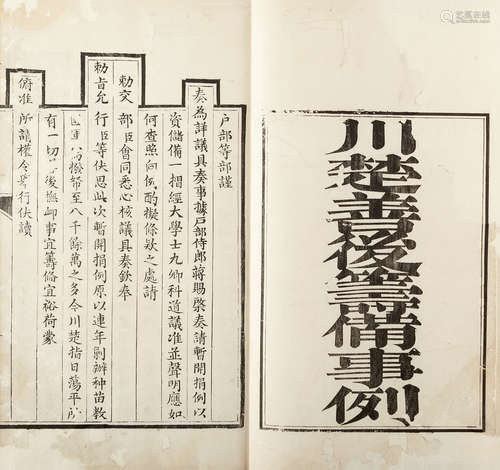 川楚善後籌備事例
戶部等部謹
奏為詳議具奏事據戶部侍郎蔣賜棨奏請暫開捐例以
資儲備一摺經大學士九卿科道議准並聲明應如
何查照向例酌擬條欵之處請
勅交部臣會同悉心核議具奏欽奉
勅旨允行臣等伏思此次暫開捐例原以連年剿辦种苗教
撥帑至八千餘萬之多今川楚指日蕩平所
有一切後撫卹事宜籌備宜裕荷蒙
俯准所議權令舉行伏讀